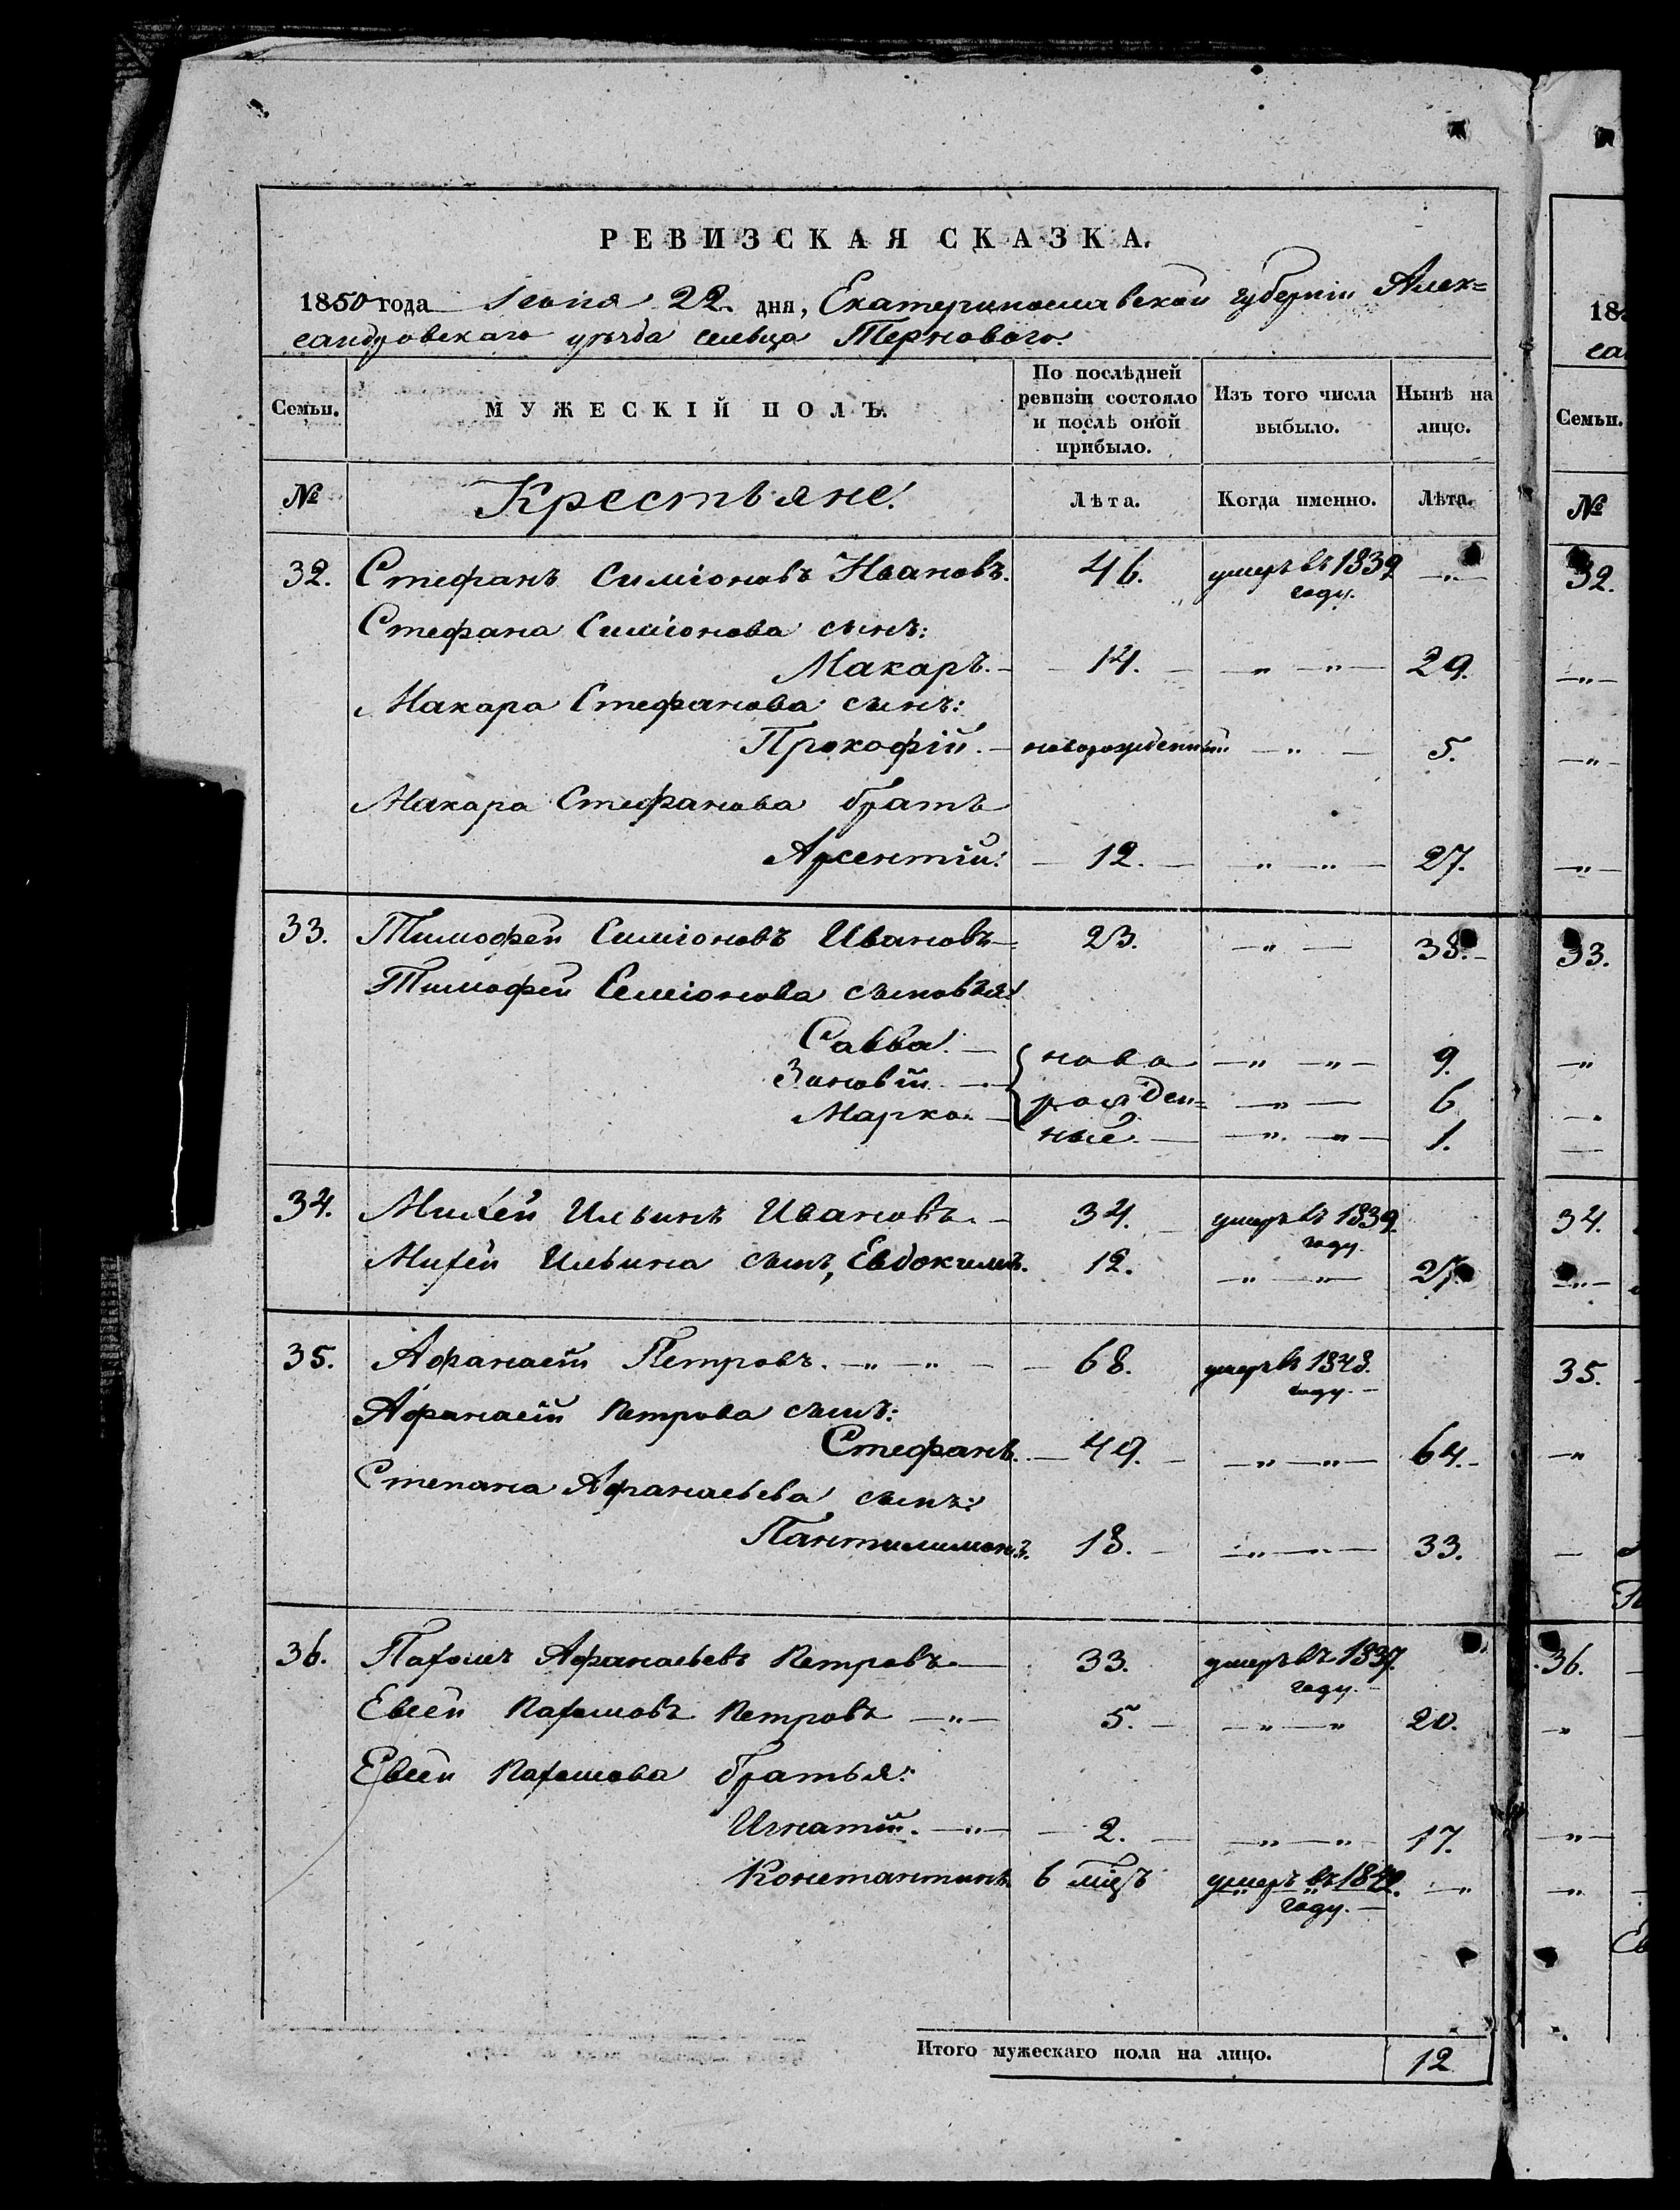 РЕВИЗСКАЯ СКАЗКА.
1850 года Іюня 22 дня, Екатеринославской губерніи Алек=
сандровскаго уѣзда сельца Терноваго.
Семьи.
МУЖЕСКІЙ ПОЛЪ.
По послѣдней ревизіи состояло и послѣ оной прибыло.
Изъ того числа выбыло.
Нынѣ на лицо.
№ Крестьяне. Лѣта. Когда именно. Лѣта.
32. Стефанъ Симіоновъ Ивановъ. 46. умеръ въ 1839 году. — " —
Стефана Симіонова сынъ:
Макаръ. — 14. — " — " — 29.
Макара Стефанова сынъ:
Прокофій. — новорожденный — " — 5.
Макара Стефанова братъ
Арсентій. — 12. — " — " — 27.
33. Тимофей Симіоновъ Ивановъ — 23. — " — 38. —
Тимофея Симіонова сыновья:
Савва. — ново — " — " — 9.
Зиновій. — рожден= — " — 6
Марко. — ные. — " — " — 1.
34. Михей Ильинъ Ивановъ. — 34. умеръ въ 1839 году.
Михея Ильина сынъ, Евдокимъ. 12. — " — " — 27.
35. Афанасій Петровъ. — " — " — 68. умеръ въ 1848. году. —
Афанасія Петрова сынъ:
Стефанъ. — 49. — " — " — 64. —
Степана Афанасьева сынъ:
Пантилимонъ. 18. — " — " — 33.
36. Пахомъ Афанасьевъ Петровъ — 33. умеръ въ 1837. году. —
Евсей Пахомовъ Петровъ — " — 5. — " — " 20.
Евсея Пахомова братья:
Игнатій. — " — 2. — " — " 17.
Константинъ 6 мцъ умеръ въ 1840. году. — "
Итого мужескаго пола на лицо. 12
18
са
Семьи.
№
32.
33.
34.
35.
36.